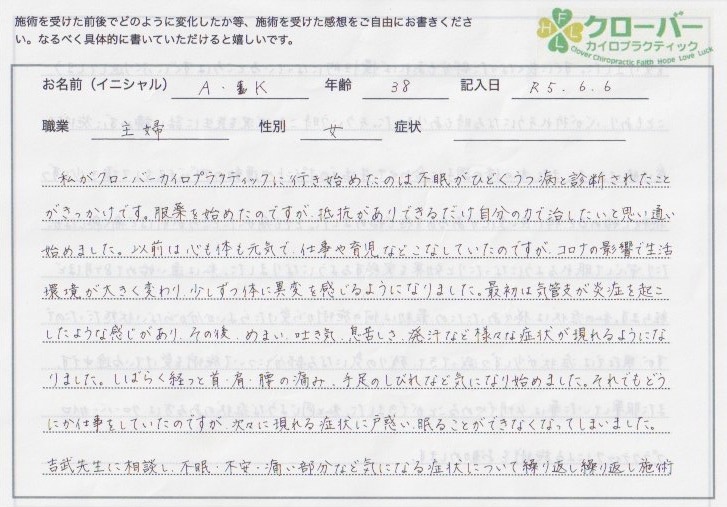 施術を受けた前後でどのように変化したか等、施術を受けた感想をご自由にお書きくださ
い。なるべく具体的に書いていただけると嬉しいです。
FHLL
クローバー
カイロプラクティック
Clover Chiropractic Faith Hope Love Luck
お名前（イニシャル） A・K 年齢 38 記入日 R5.6.6
職業 主婦 性別 女 症状
私がクローバーカイロプラクティックに行き始めたのは不眠がひどくうつ病と診断されたこと
がきっかけです。服薬を始めたのですが、抵抗がありできるだけ自分の力で治したいと思い通い
始めました。以前は心も体も元気で、仕事や育児などこなしていたのですが、コロナの影響で生活
環境が大きく変わり、少しずつ体に異変を感じるようになりました。最初は気管支が炎症を起こ
したような感じがあり、その後、めまい、吐き気、息苦しさ、発汗など様々な症状が現れるようにな
りました。しばらく経つと首・肩・腰の痛み、手足のしびれなど気になり始めました。それでもどう
にか仕事をしていたのですが、次々に現れる症状に戸惑い、眠ることができなくなってしまいました。
吉武先生に相談し、不眠・不安・痛い部分など気になる症状について繰り返し繰り返し施術